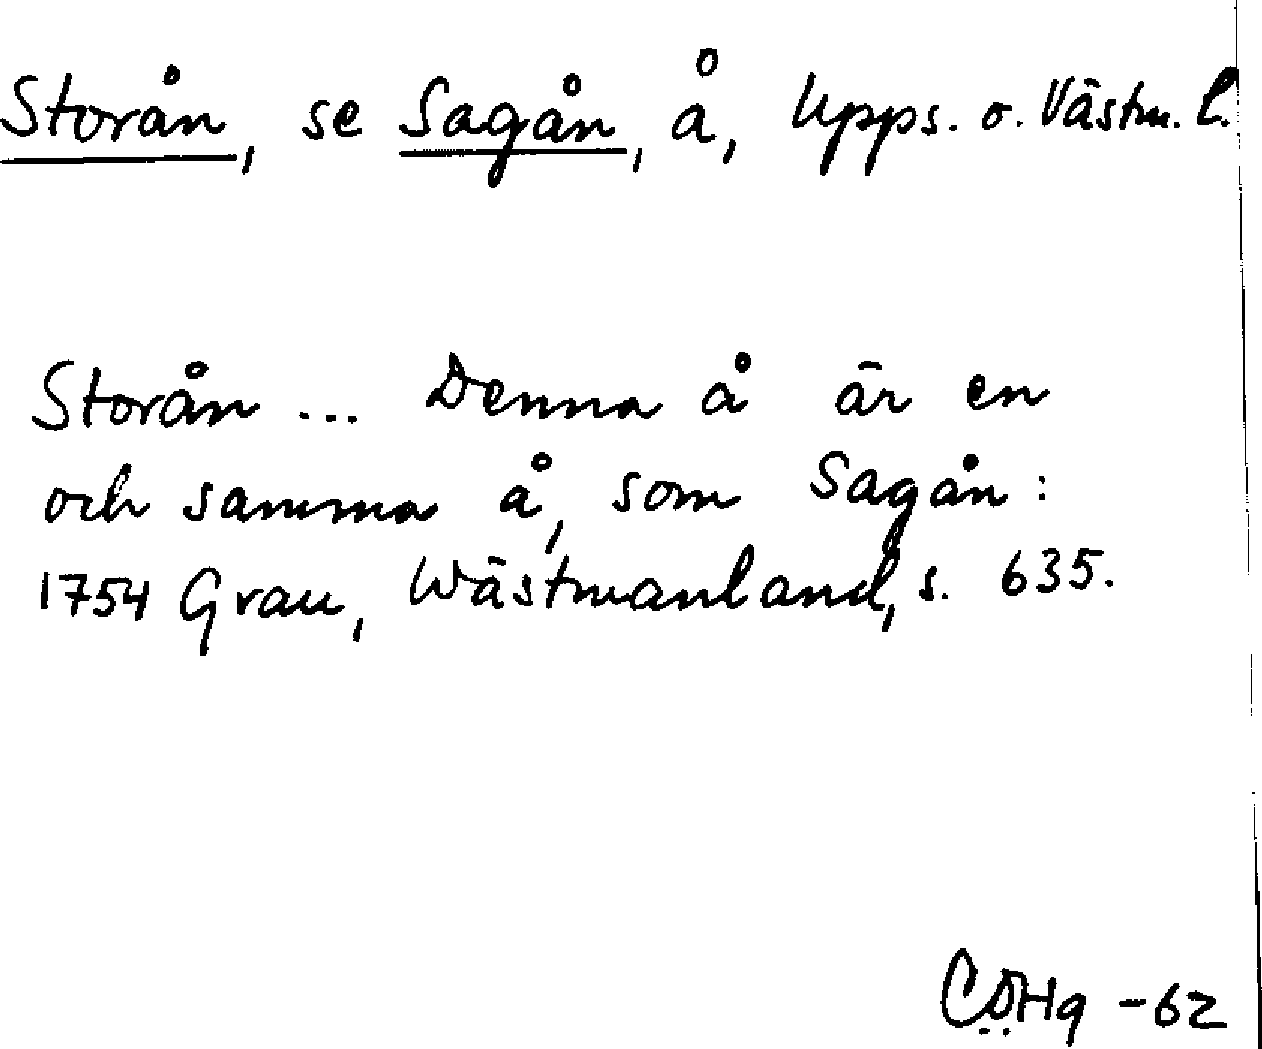 Storån, se Sagån, å, Upps. o. Västm. l.
Storån ... Denna å är en
och samma å, som Sagån:
1754 Grau, Wästmanland, s. 635.
CÖHg -62